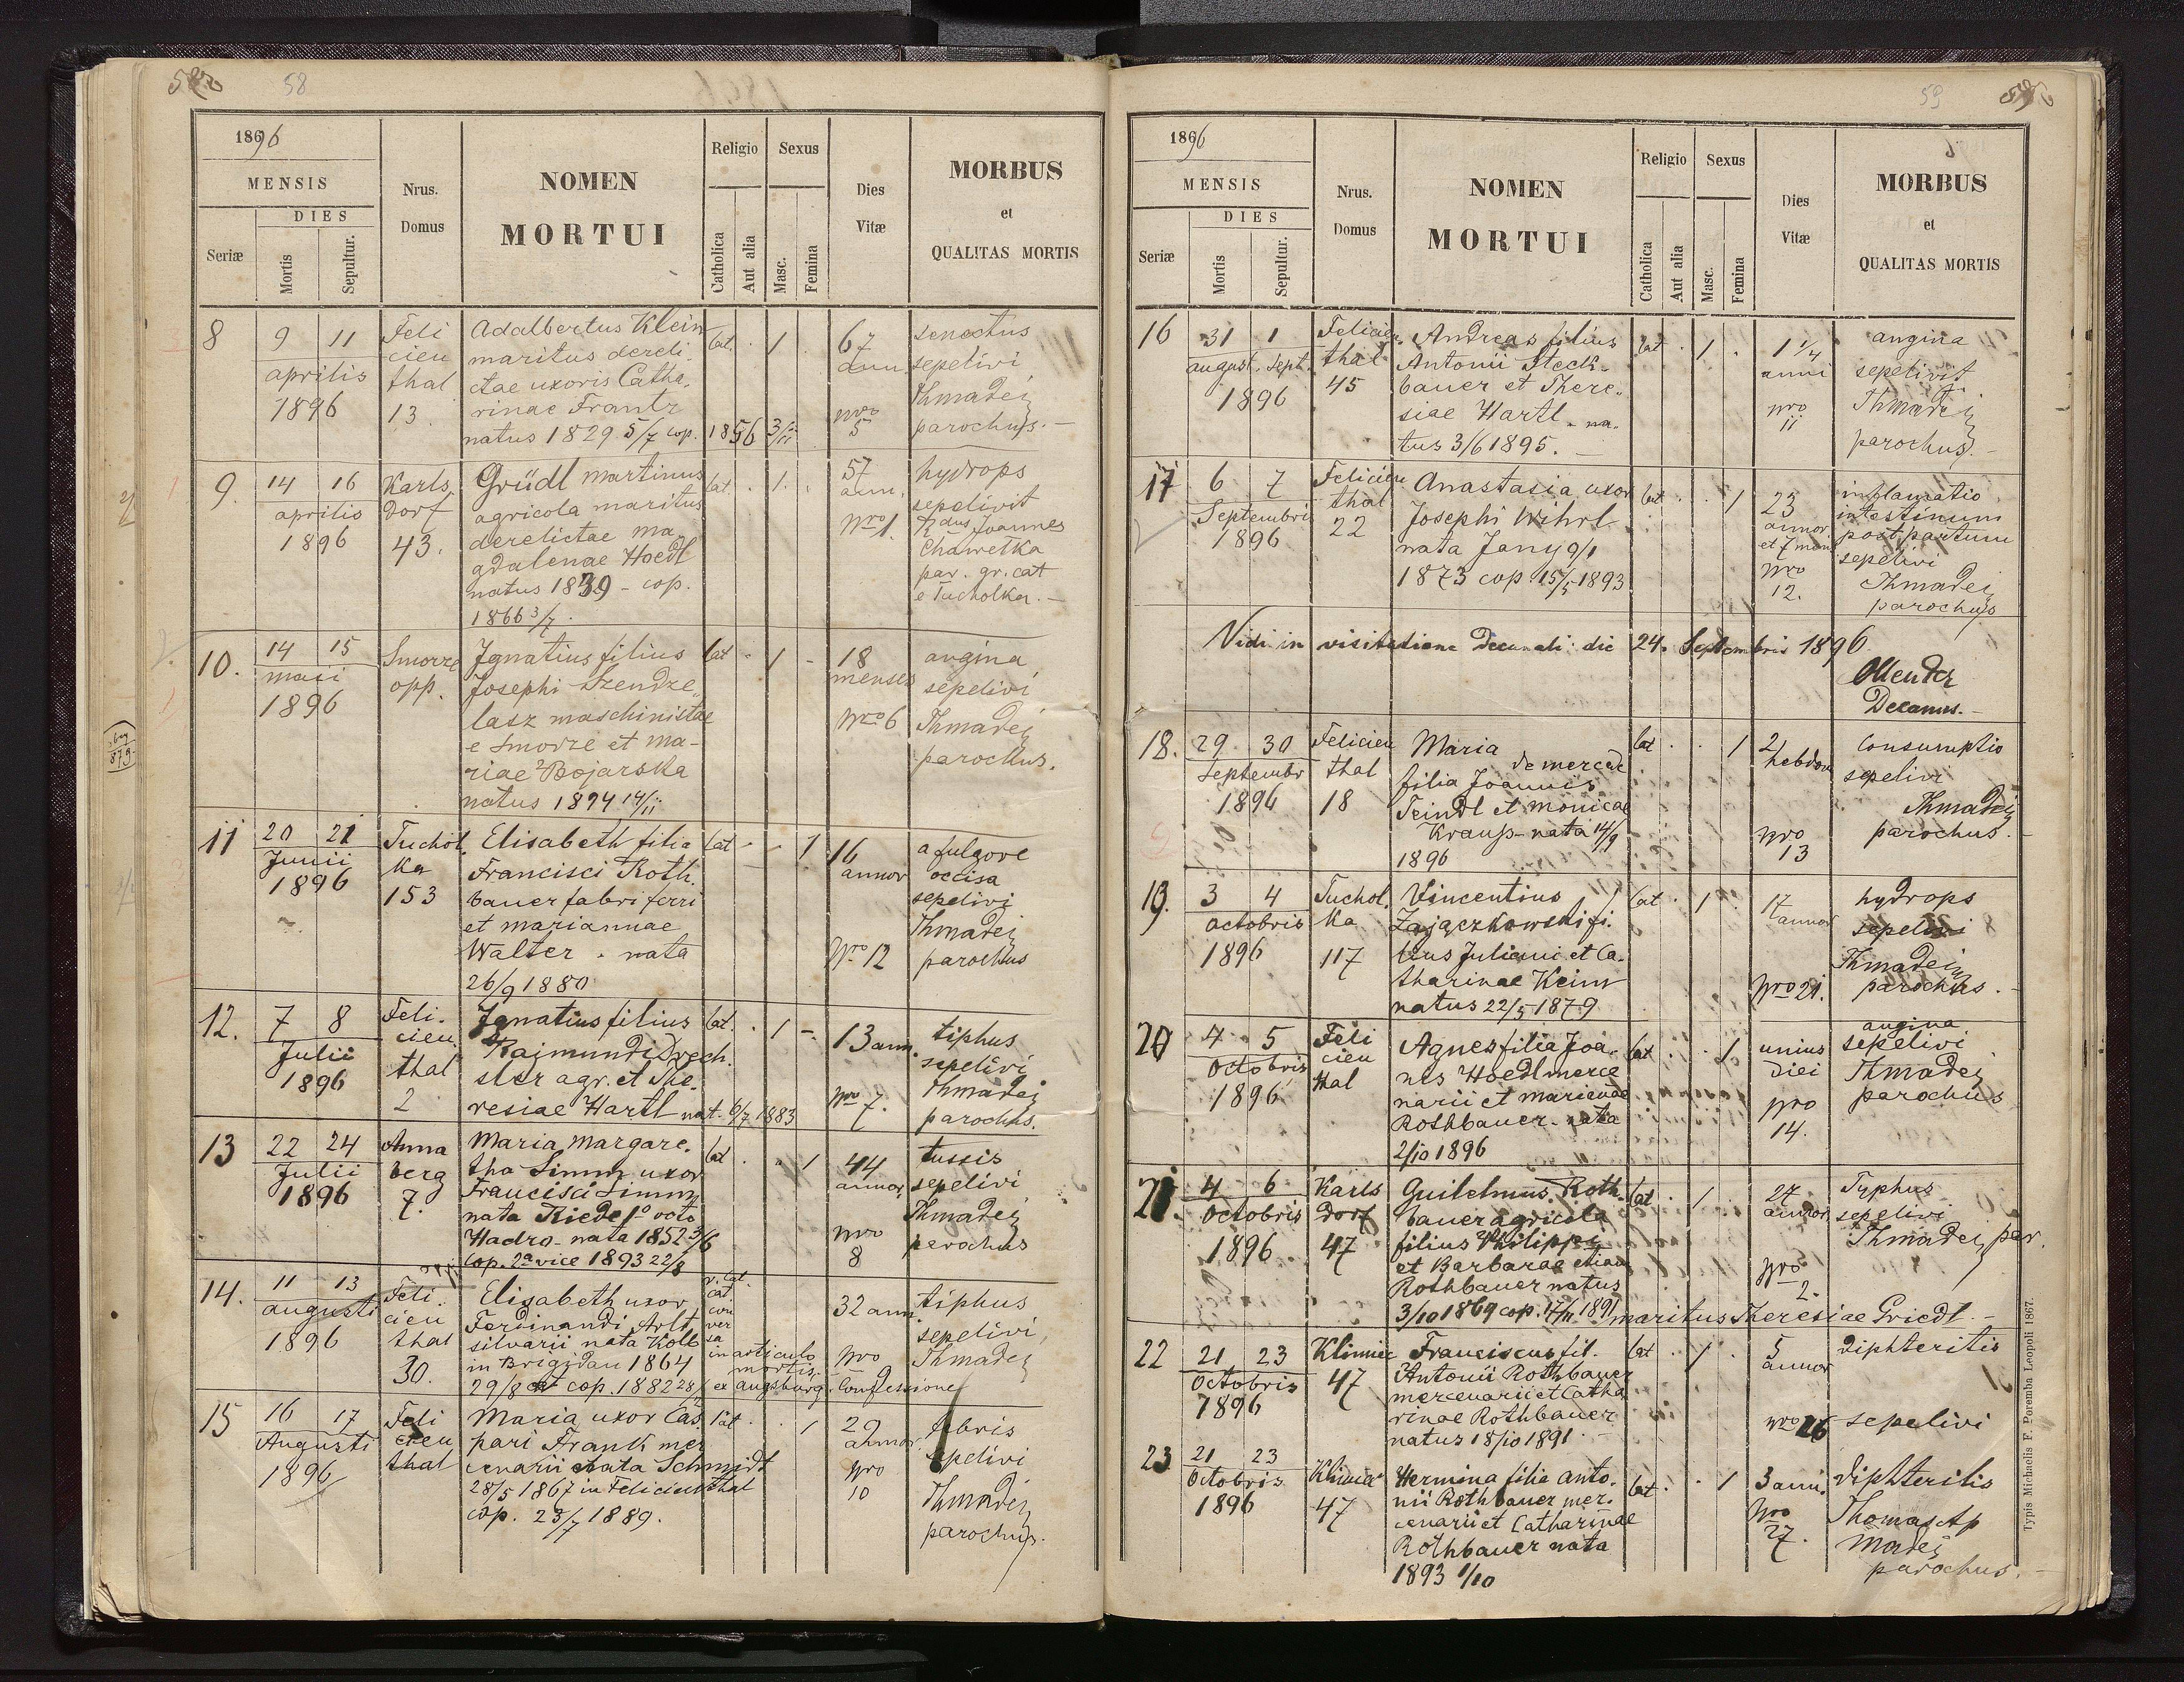 58
1896
MENSIS
DIES
Seriæ
Mortis
Sepultur.
Nrus.
Domus
NOMEN
MORTUI
Religio
Catholica
Aut alia
Sexus
Masc.
Femina
Dies
Vitæ
MORBUS
et
QUALITAS MORTIS
8
9 11
aprilis
1896
Feli
cien
thal
13.
Adalbertus Klein
maritus dereli-
ctae uxoris Catha-
rinae Frantz
natus 1829 5/7 cop. 1856 3/11
Cat. 1
67
ann.
nro
5
senectus
sepelivi
Thmadej
parochus.
9.
14 16
aprilis
1896
Karls
dorf
43.
Grüdl martinus
agricola maritus
derelictae ma
gdalenae Hoedl
natus 1839 - cop.
1866 3/7.
Cat. 1.
57
ann.
Nro 1.
hydrops
sepelivit
Rdus Joannes
Chawetka
par. gr. cat
e Tucholka.
10.
14 15
maii
1896
Smorze
opp.
Ignatius filius
Josephi Szendze-
lasz maschinistae
e Smorze et ma-
riae Bojarska
natus 1894 14/11
Cat 1 -
18
menses
Nro 6
angina
sepelivi
Thmadej
parochus.
11
20 21
Junii
1896
Tuchol.
ka
153
Elisabeth filia
Francisci Roth.
bauer fabri ferri
et mariannae
Walter . nata
26/9 1880
Cat - - 1
16
annor
Nro 12
a fulgore
occisa
sepelivi
Thmadej
parochus
12.
7 8
Julii
1896
Feli.
cien
thal
2
Ignatius filius
Rajmundi Drech.
sler agr. et The.
resiae Hartl nat. 6/7 1883
Cat. 1 -
13 ann.
Nro 7.
tiphus
sepelivi
Thmadej
parochus.
13
22 24
Julii
1896
Anna
berg
7.
Maria Margare.
tha Simm uxor
Francisci Simm
nata Riedel 1o voto
Hadro - nata 1852 3/6
cop. 2a vice 1893 22/8
Cat 1
44
annor
nro
8
tussis
sepelivi
Thmadej
parochus
14.
11 13
augusti
1896
Feli.
cien
thal
30.
Elisabeth uxor
Ferdinandi Arlt
silvarii nata Kolb
in Brigidau 1864
29/8 cop. 1882 28/
r. cat.
cat
con
ver
sa
in articulo
mortis,
ex augsburg. Confessione
32 ann.
nro
tiphus
sepelivi,
Thmadej
15
16 17
Augusti
1896
Feli
cien
thal
Maria uxor Cas.
pari Frank mer
cenarii nata Schmidt
28/5 1867 in Felicienthal
cop. 23/7 1889.
Cat 1
29
annor
nro
10
febris
sepelivi
Thmadej
parochus.
59
1896
MENSIS
DIES
Seriæ
Mortis
Sepultur.
Nrus.
Domus
NOMEN
MORTUI
Religio
Catholica
Aut alia
Sexus
Masc.
Femina
Dies
Vitæ
MORBUS
et
QUALITAS MORTIS
16
31 1
august. Sept.
1896
Felicien
thal
45
Andreas filius
Antonii Steck-
bauer et There-
siae Hartl - na-
tus 3/6 1895.
Cat 1
1 1/4
anni
nro
11
angina
sepelivit
Thmadej
parochus.
17
6 7
Septembris
1896
Felicien
thal
22
Anastasia uxor
Josephi Wihrl
nata Jany 9/1
1873 cop. 15/5 1893
Cat 1
23
annor
et 7 mens
nro
12.
inflamatio
intestinum
post partum
sepelivi
Thmadej
parochus
Vidi in visitatione Decanali die 24. Septembris 1896
Decanus.
18.
29 30
Septembr
1896
Felicien
thal
18
Maria
de mercede
filia Joannis
Teindl et monicae
Krauss nata 14/9
1896
Cat 1
2
hebdom
nro
13
Consumptio
sepelivi
Thmadej
parochus.
19.
3 4
octobris
1896
Tuchol.
ka
117
Vincentius
Zajączkowski fi.
lius Juliani et Ca.
tharinae Keim
natus 22/5 1879
Cat 1
17
annor
Nro 21.
hydrops
sepelivi
Thmadej
parochus.
20
4 5
octobris
1896
Feli
cien
thal
Agnes filia Joa.
nis Hoedl merce
narii et marianae
Rothbauer - nata
2/10 1896
Cat 1
unius
diei
nro
14.
angina
sepelivi
Thmadej
parochus
21.
4 6
Octobris
1896
Karls
dorf
47
Guilelmus Roth.
bauer agricola
filius Philippi
et Barbarae etiam
Rothbauer natus
3/10 1869 cop. 4/11 1891 maritus Theresiae Griedl
Cat 1
27
annor
nro
2.
Typhus
sepelivi
Thmadej par.
22
21 23
octobris
1896
Klimiec
47
Franciscus fil.
Antonii Rothbauer
mercenarii et Catha
rinae Rothbauer
natus 18/10 1891.
Cat 1
5
annor
nro 26
diphteritis
sepelivi
23
21 23
octobris
1896
Klimiec
47
Hermina filia anto.
nii Rothbauer mer.
cenarii et Catharinae
Rothbauer nata
1893 1/10
Cat 1
3 ann.
Nro
27.
diphteritis
Thomas Ap
Madej
parochus.
Typis Michaelis F. Poremba Leopoli 1867.